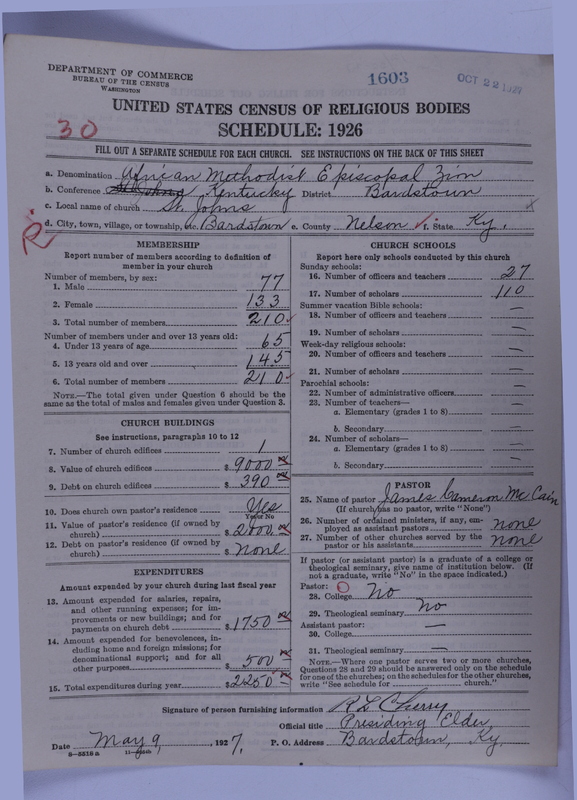 DEPARTMENT OF COMMERCE
BUREAU OF THE CENSUS
WASHINGTON
1603
OCT 22 1927
UNITED STATES CENSUS OF RELIGIOUS BODIES
30
SCHEDULE: 1926
FILL OUT A SEPARATE SCHEDULE FOR EACH CHURCH. SEE INSTRUCTIONS ON THE BACK OF THIS SHEET
a. Denomination African Methodist Episcopal Zion
b. Conference Kentucky District Bardstown
c. Local name of church St. Johns
d. City, town, village, or township, etc. Bardstown e. County Nelson f. State Ky.
R
MEMBERSHIP
Report number of members according to definition of
member in your church
Number of members, by sex:
1. Male 77
2. Female 133
3. Total number of members 210
Number of members under and over 13 years old:
4. Under 13 years of age 65
5. 13 years old and over 145
6. Total number of members 210
NOTE.—The total given under Question 6 should be
same as the total of males and females given under Question 3.
CHURCH BUILDINGS
See instructions, paragraphs 10 to 12
7. Number of church edifices 1
8. Value of church edifices $ 9000
9. Debt on church edifices $ 390
10. Does church own pastor's residence Yes
Yes or No
11. Value of pastor's residence (if owned by
church) $ 2000
12. Debt on pastor's residence (if owned by
church) $ none
EXPENDITURES
Amount expended by your church during last fiscal year
13. Amount expended for salaries, repairs,
and other running expenses; for im-
provements or new buildings; and for
payments on church debt $ 1750
14. Amount expended for benevolences, in-
cluding home and foreign missions; for
denominational support; and for all
other purposes $ 500
15. Total expenditures during year $ 2250
CHURCH SCHOOLS
Report here only schools conducted by this church
Sunday schools:
16. Number of officers and teachers 27
17. Number of scholars 110
Summer vacation Bible schools:
18. Number of officers and teachers —
19. Number of scholars —
Week-day religious schools:
20. Number of officers and teachers —
21. Number of scholars —
Parochial schools:
22. Number of administrative officers —
23. Number of teachers—
a. Elementary (grades 1 to 8) —
b. Secondary —
24. Number of scholars—
a. Elementary (grades 1 to 8) —
b. Secondary —
PASTOR
25. Name of pastor James Cameron McCain
(If church has no pastor, write "None")
26. Number of ordained ministers, if any, em-
ployed as assistant pastors none
27. Number of other churches served by the
pastor or his assistants none
If pastor (or assistant pastor) is a graduate of a college or
theological seminary, give name of institution below. (If
not a graduate, write "No" in the space indicated.)
Pastor:
28. College No
29. Theological seminary No
Assistant pastor:
30. College —
31. Theological seminary —
NOTE.—Where one pastor serves two or more churches,
Questions 28 and 29 should be answered only on the schedule
for one of the churches; on the schedules for the other churches,
write "See schedule for church."
Signature of person furnishing information R L Cherry
Official title Presiding Elder
Date May 9, 1927. P. O. Address Bardstown, Ky.